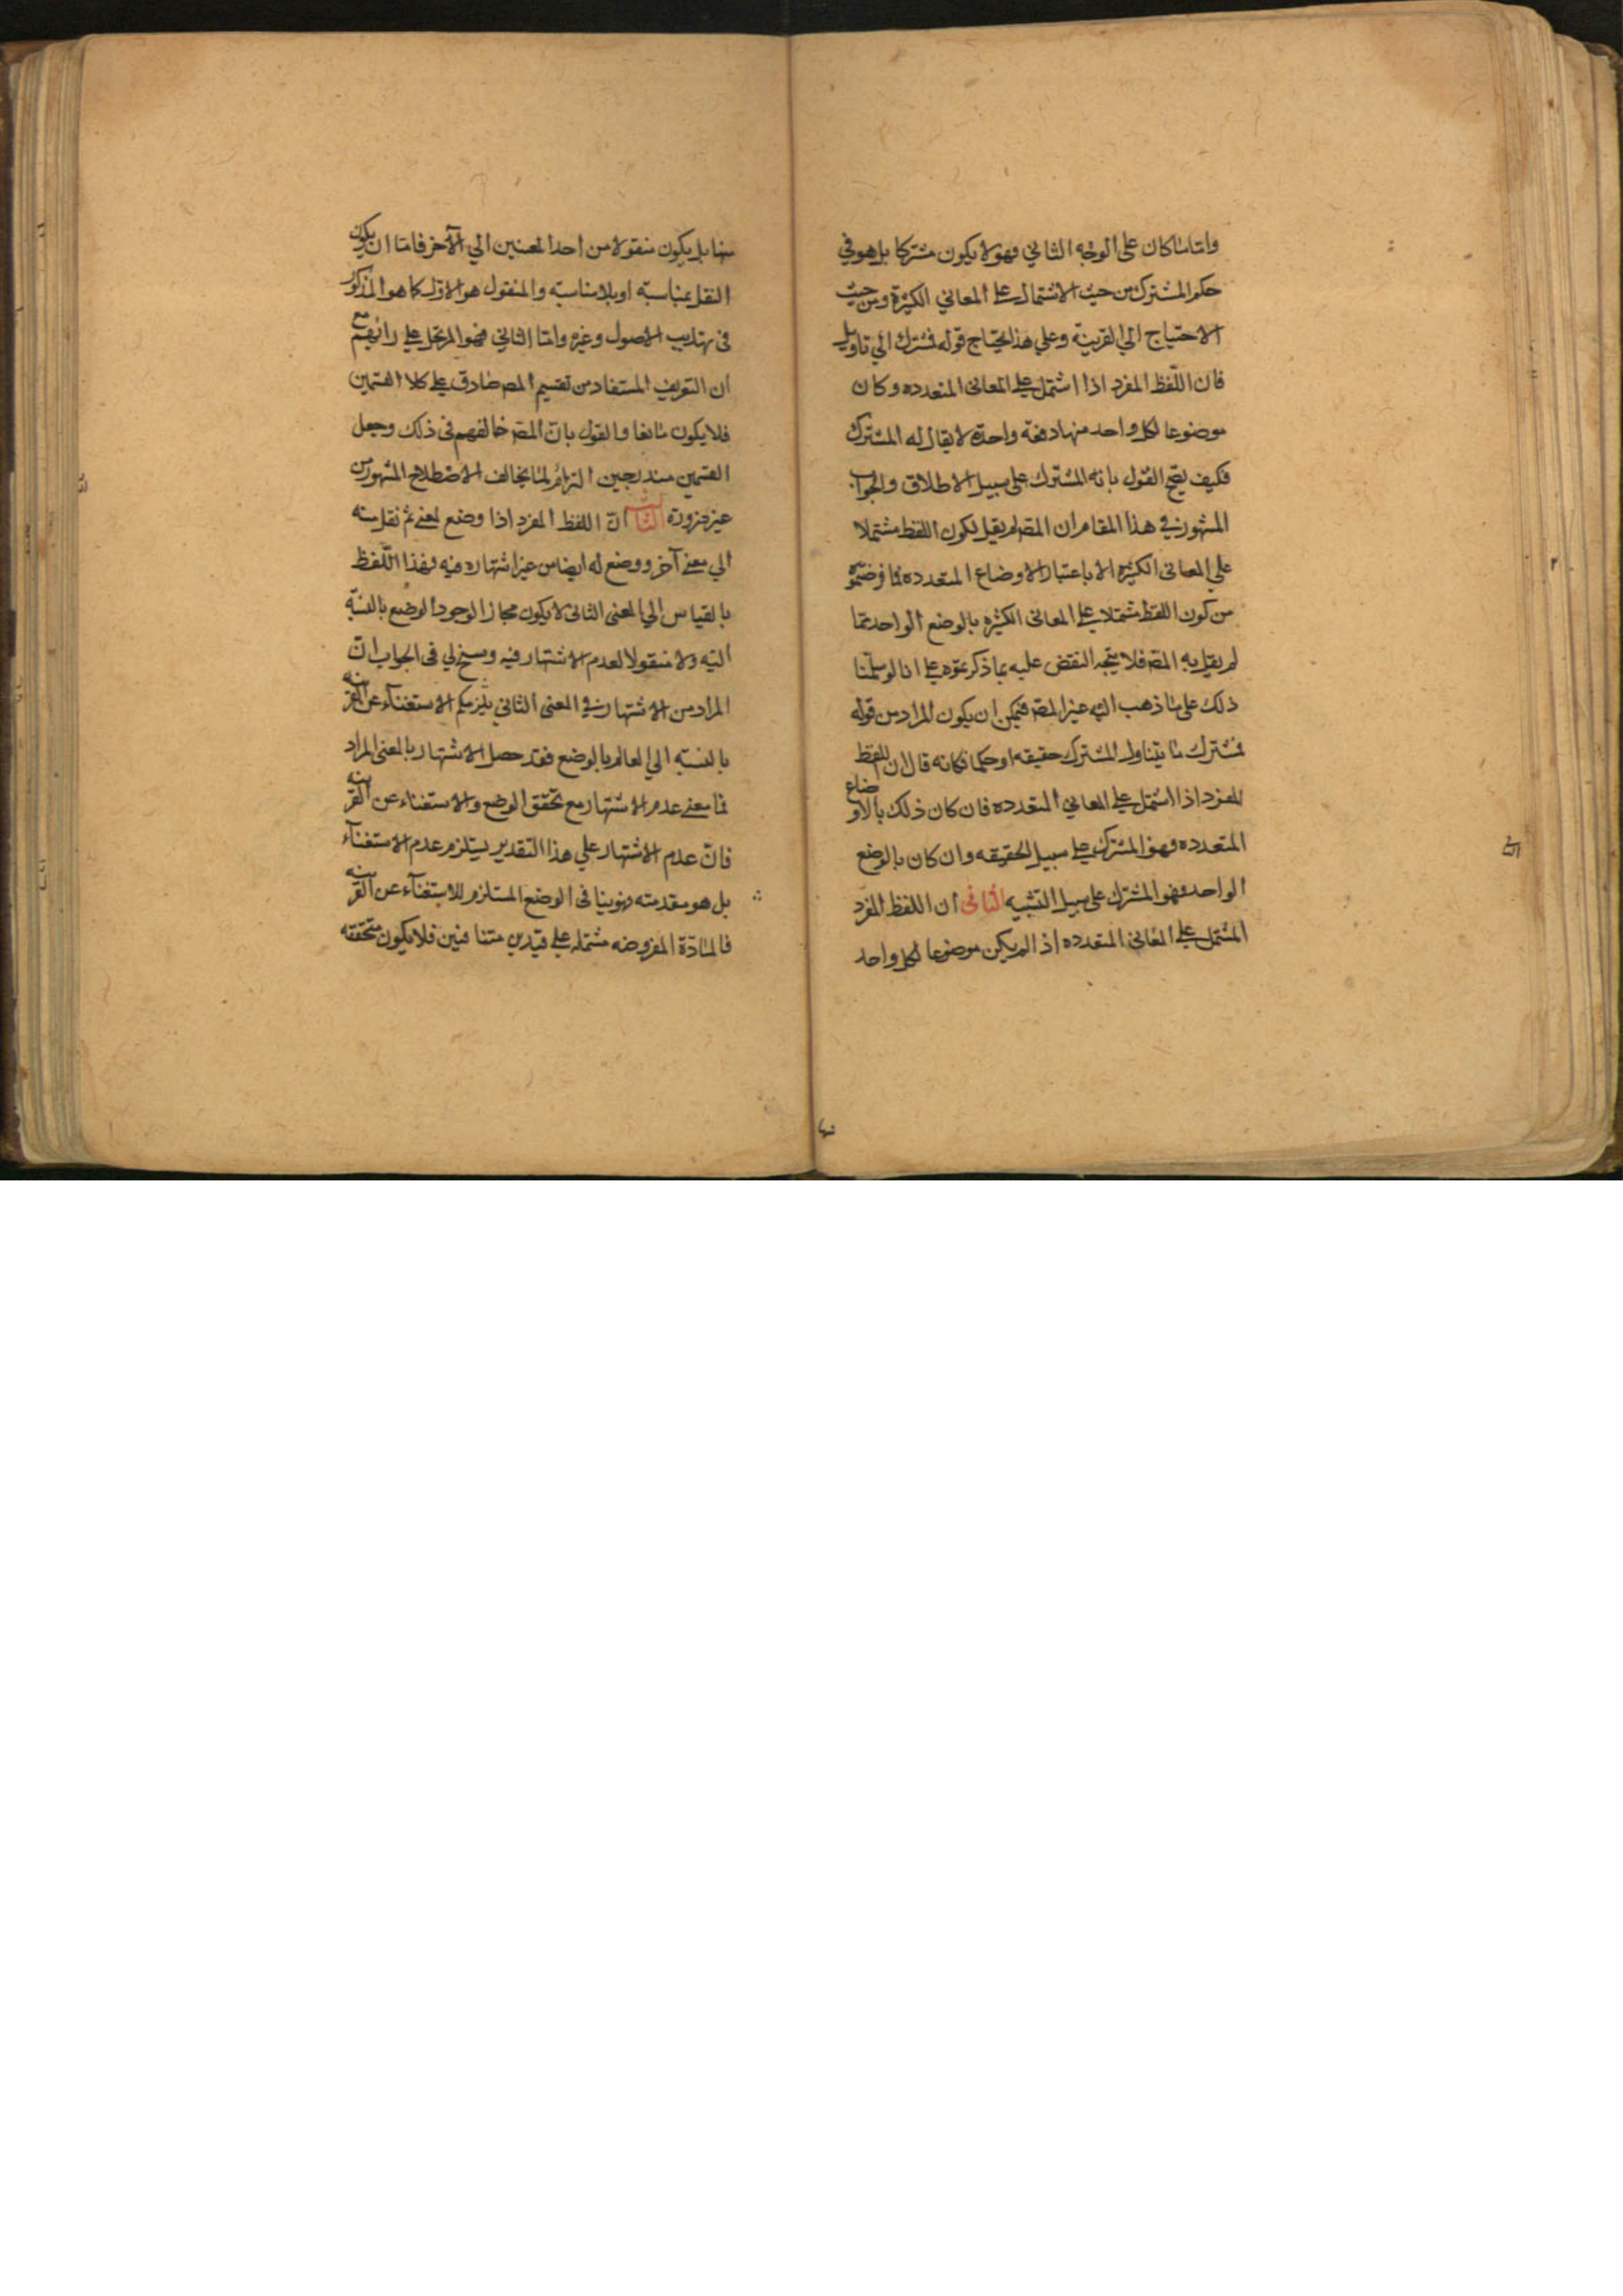 واما ما كان على الوجه الثاني فهو لا يكون مشتركا بل هو في
حكم المشترك من حيث الاشتمال على المعاني الكثيرة ومن حيث
الاحتياج الي القرينة وعلي هذا يحتاج قوله فمشترك الي تاويل
فان اللفظ المفرد اذا اشتمل على المعاني المتعدده وكان
موضوعا لكل واحد منها دفعة واحدة لا يقال له المشترك
فكيف يصح القول بانه المشترك على سبيل الاطلاق والجواب
المشهور في هذا المقام ان المصـ لم يقل بكون اللفظ مشتملا
علي المعاني الكثيره الا باعتبار الاوضاع المتعدده فما فرضتموه
من كون اللفظ مشتملا على المعاني الكثيره بالوضع الواحد مما
لم يقل به المصـ فلا يتجه النقض عليه بما ذكرتموه على انا لو سلمنا
ذلك على ما ذهب اليه غير المصـ فيمكن ان يكون المراد من قوله
فمشترك ما يتناول المشترك حقيقه او حكما فكانه قال ان اللفظ
المفرد اذا اشتمل على المعاني المتعدده فان كان ذلك بالاوضاع
المتعدده فهو المشترك على سبيل الحقيقه وان كان بالوضع
الواحد فهو المشترك على سبيل التشبيه الثاني ان اللفظ المفرد
المشتمل على المعاني المتعدده اذا لم يكن موضوعا لكل واحد
منها
منها بل يكون منقولا من احد المعنيين الي الآخر فاما ان يكون
النقل بمناسبة او بلا مناسبة والمنقول هو الاول كما هو المذكور
في تهذيب الاصول وغيره واما الثاني فهو المرتجل على رائهم مع
ان التعريف المستفاد من تقسيم المصـ صادق على كلا القسمين
فلا يكون مانعا والقول بان المصـ خالفهم في ذلك وجعل
القسمين مندرجين التزام لما يخالف الاصطلاح المشهور من
غير ضرورة الثالث ان اللفظ المفرد اذا وضع لمعنى ثم نقل منه
الي معنى آخر ووضع له ايضا من غير اشتهاره فيه فهذا اللفظ
بالقياس الي المعنى الثاني لا يكون مجازا لوجود الوضع بالنسبة
اليه ولا منقولا لعدم الاشتهار فيه وسنح لي في الجواب ان
المراد من الاشتهار في المعنى الثاني الاستغناء عن القرينه
بالنسبة الي العالم بالوضع فقد حصل الاشتهار بالمعنى المراد
فما معنى عدم الاشتهار مع تحقق الوضع والاستغناء عن القرينه
فان عدم الاشتهار علي هذا التقدير يستلزم عدم الاستغناء
بل هو مقدمته فهو ينافي الوضع المستلزم للاستغناء عن القرينه
فالمادة المفروضه مشتمله على قيدين متنافيين فلا يكون متحققه